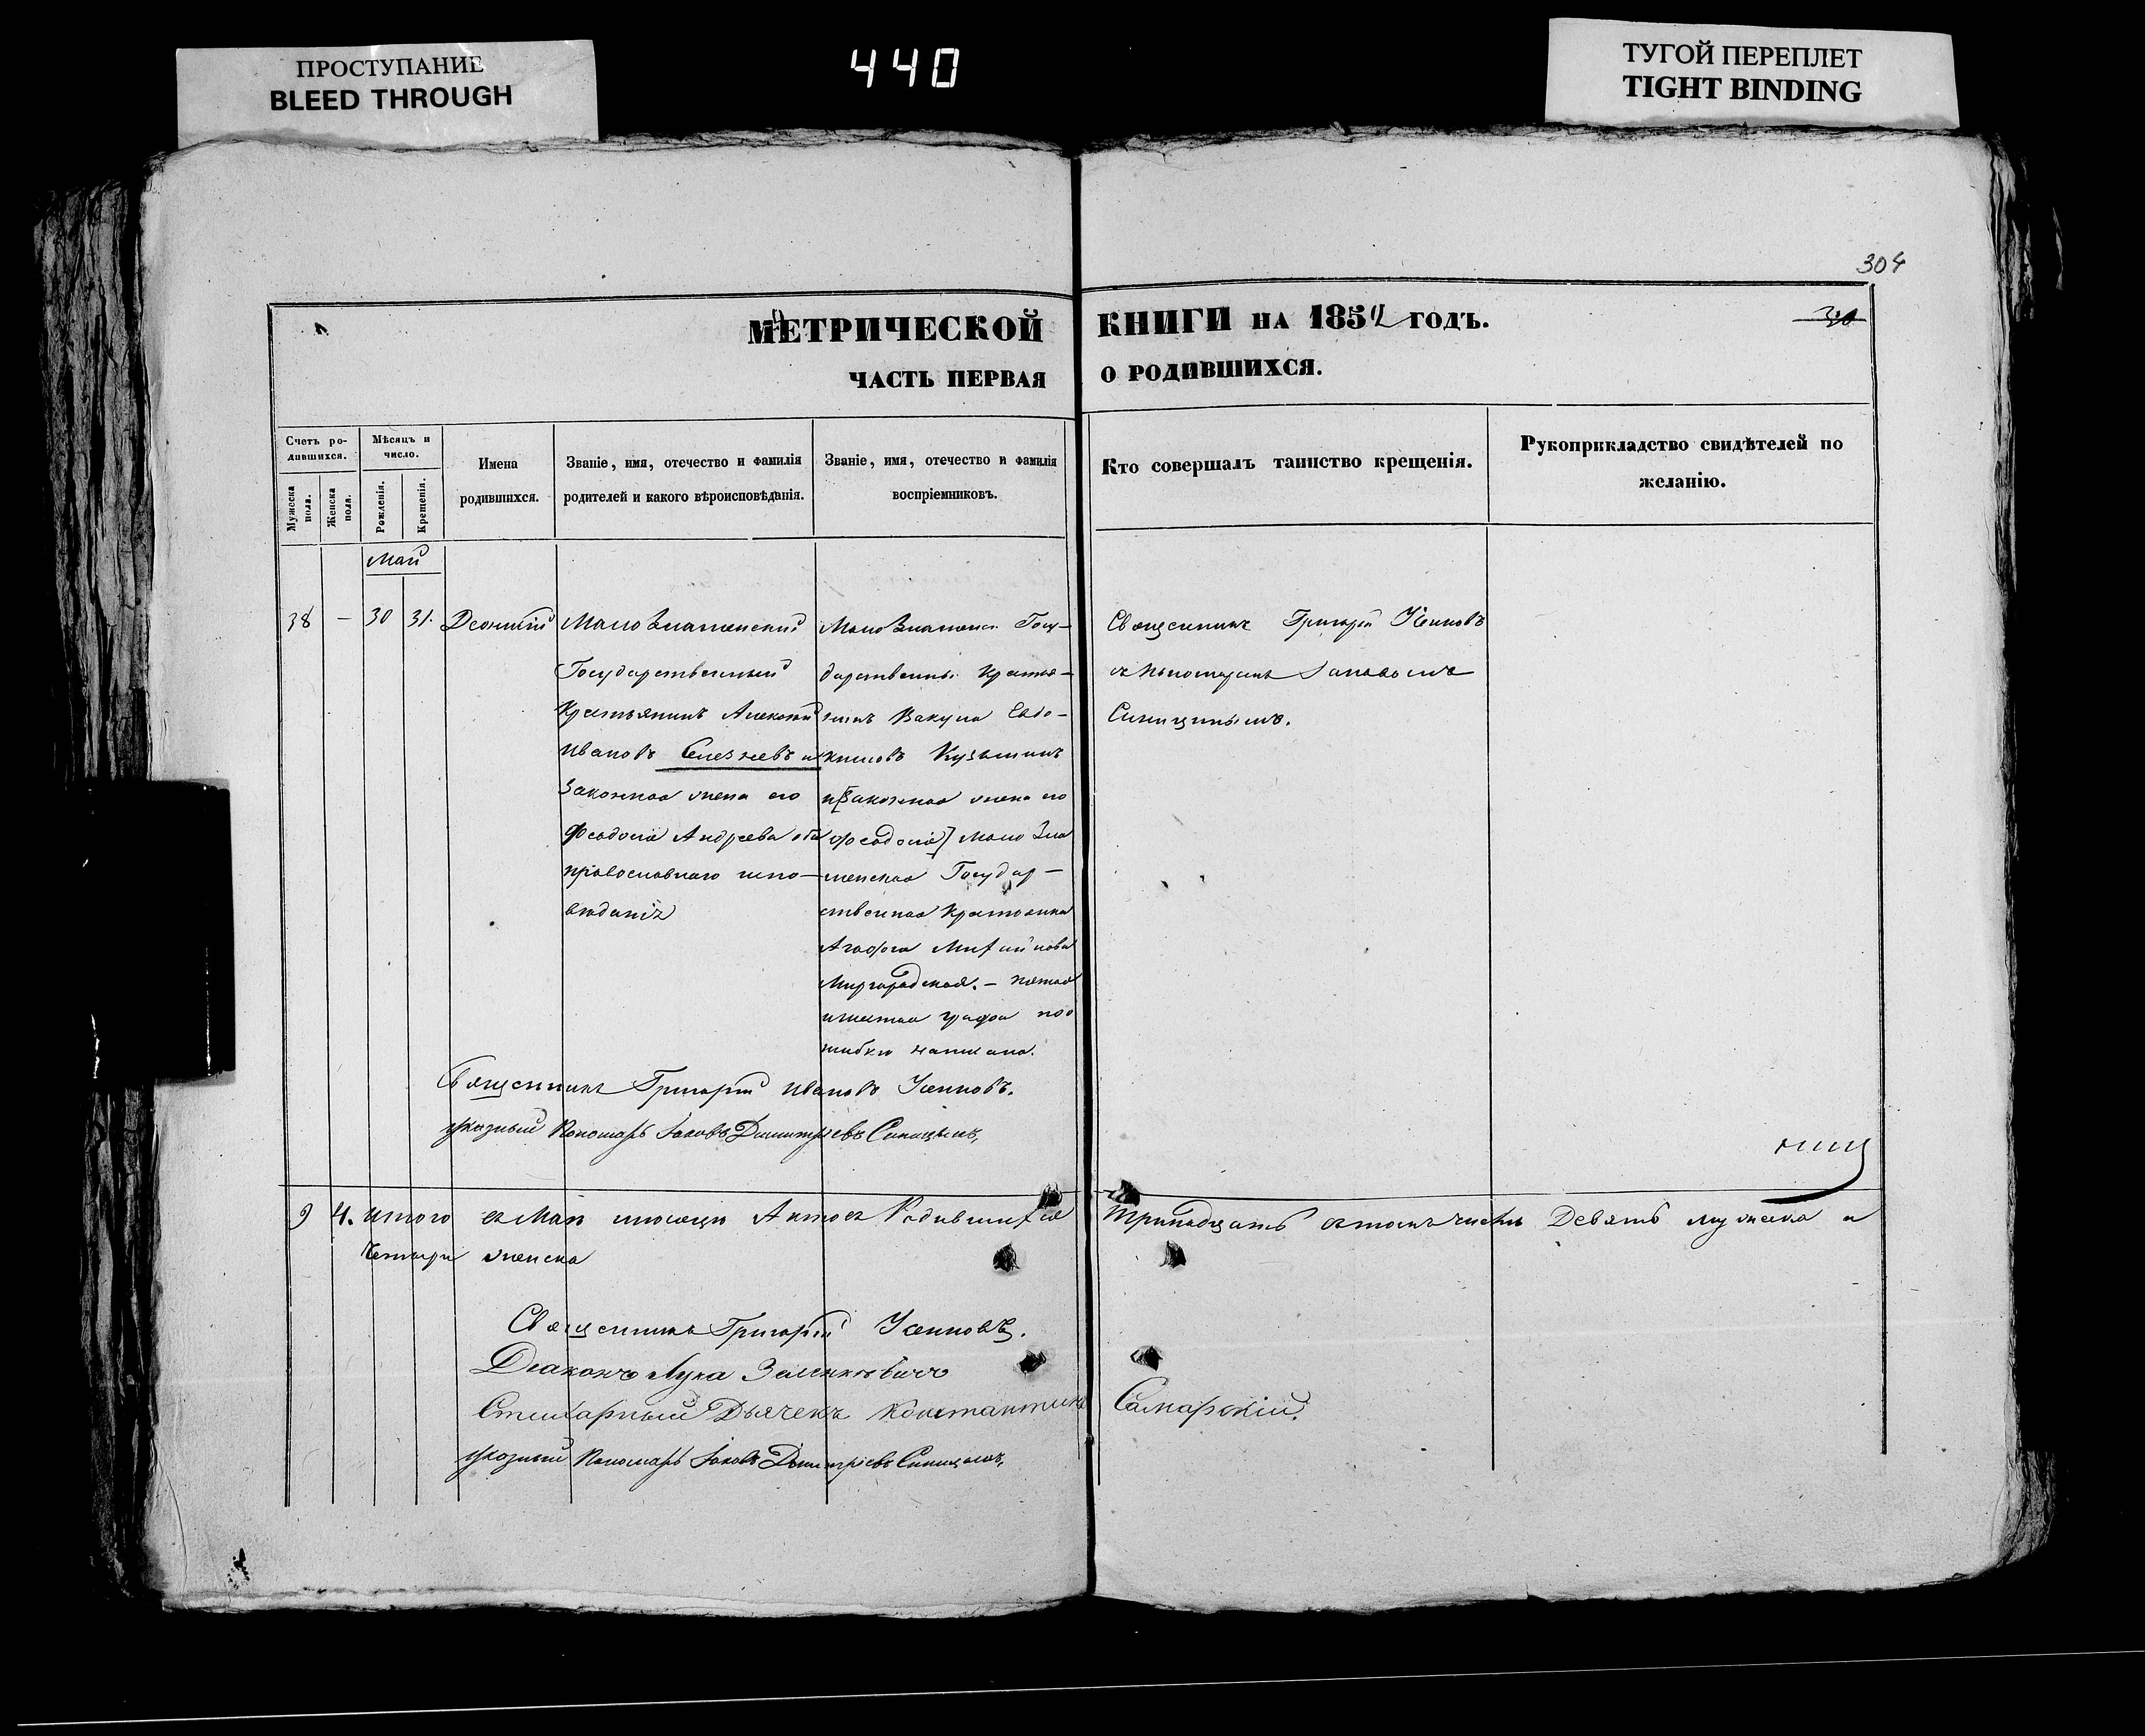 ПРОСТУПАНИЕ
BLEED THROUGH
440
ТУГОЙ ПЕРЕПЛЕТ
TIGHT BINDING
304
МЕТРИЧЕСКОЙ КНИГИ НА 1852 ГОДЪ.
30
ЧАСТЬ ПЕРВАЯ О РОДИВШИХСЯ.
Счетъ ро-
дившихся.
Мужеска пола.
Женска пола.
Мѣсяцъ и
число.
Рожденія.
Крещенія.
Имена
родившихся.
Званіе, имя, отечество и фамилія
родителей и какого вѣроисповѣданія.
Званіе, имя, отечество и фамилія
воспріемниковъ.
Кто совершалъ таинство крещенія.
Рукоприкладство свидѣтелей по
желанію.
Май
38 – 30 31.
Государственный
Крестьянинъ Алексѣй
Ивановъ Селезневъ и
Законная жена его
Феодосія Андреева оба
православнаго испо-
вѣданія
Госу-
дарственный Крестья-
нинъ Вакула Евдо-
кимовъ Кузьминъ
и [Законная жена его
Феодосія]
Государ-
ственная Крестьянка
Миргородская. – пятая
и шестая графа по о
шибки написана.
Священникъ Григорій
съ Пономаремъ Іаковомъ
Синицинымъ.
Священникъ Григорій Ивановъ
указный Пономарь Іаковъ Димитріевъ Синицынъ,
9 4. Итого въ Маѣ мѣсяцѣ Родившихся Тринадцать въ томъ числѣ Девять мужеска и
Четыри женска
Священникъ Григорій
Діаконъ Лука
Стихарный Дьячекъ Константинъ Самарскій.
указный Пономарь Іаковъ Димитріевъ Синицынъ,